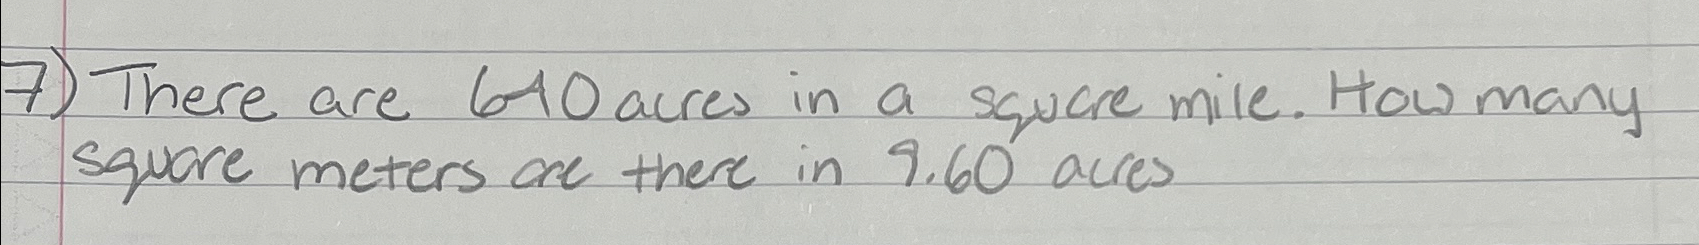 7) There are 640 acres in a square mile. How many
square meters are there in 9.60 acres